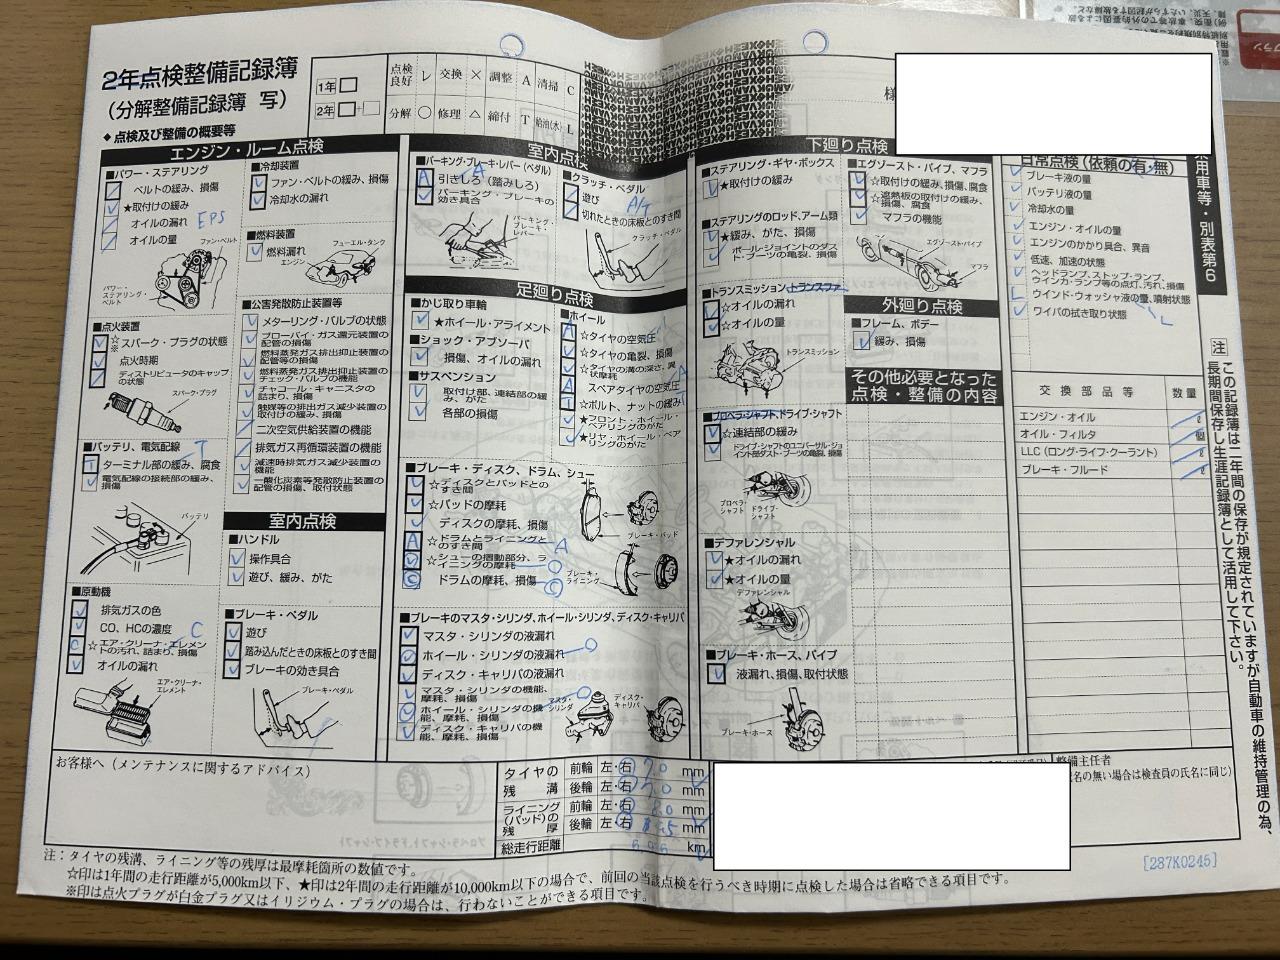 2年点検整備記録簿
(分解整備記録簿 写)
◆点検及び整備の概要等
1年
2年
点検良好 レ 交換 × 調整 A 清掃 C
分解 ○ 修理 △ 締付 T 給油(水) L
様
エンジン・ルーム点検
■パワー・ステアリング
ベルトの緩み、損傷
★取付けの緩み
オイルの漏れ
EPS
オイルの量
ファン・ベルト
パワー・ステアリング・ベルト
■点火装置
☆※スパーク・プラグの状態
点火時期
ディストリビュータのキャップの状態
スパーク・プラグ
■バッテリ、電気配線
T
ターミナル部の緩み、腐食
電気配線の接続部の緩み、損傷
バッテリ
■原動機
排気ガスの色
CO、HCの濃度
C
☆エア・クリーナ・エレメントの汚れ、詰まり、損傷
オイルの漏れ
エア・クリーナ・エレメント
■冷却装置
ファン・ベルトの緩み、損傷
冷却水の漏れ
■燃料装置
燃料漏れ
フューエル・タンク
エンジン
■公害発散防止装置等
メターリング・バルブの状態
ブローバイ・ガス還元装置の配管の損傷
燃料蒸発ガス排出抑止装置の配管等の損傷
燃料蒸発ガス排出抑止装置のチェック・バルブの機能
チャコール・キャニスタの詰まり、損傷
触媒等の排出ガス減少装置の取付けの緩み、損傷
二次空気供給装置の機能
排気ガス再循環装置の機能
減速時排気ガス減少装置の機能
一酸化炭素等発散防止装置の配管の損傷、取付状態
室内点検
■ハンドル
操作具合
遊び、緩み、がた
■ブレーキ・ペダル
遊び
踏み込んだときの床板とのすき間
ブレーキの効き具合
ブレーキ・ペダル
室内点検
■パーキング・ブレーキ・レバー(ペダル)
A
引きしろ(踏みしろ)
パーキング・ブレーキの効き具合
パーキング・ブレーキ・レバー
■クラッチ・ペダル
遊び
A/T
切れたときの床板とのすき間
クラッチ・ペダル
足廻り点検
■かじ取り車輪
★ホイール・アライメント
■ショック・アブソーバ
損傷、オイルの漏れ
■サスペンション
取付部、連結部の緩み、がた
各部の損傷
■ホイール
☆タイヤの空気圧
☆タイヤの亀裂、損傷
☆タイヤの溝の深さ、異状摩耗
スペアタイヤの空気圧
☆ボルト、ナットの緩み
★フロント・ホイール・ベアリングのがた
★リヤ・ホイール・ベアリングのがた
■ブレーキ・ディスク、ドラム、シュー
☆ディスクとパッドとのすき間
☆パッドの摩耗
ディスクの摩耗、損傷
☆ドラムとライニングとのすき間
☆シューの摺動部分、ライニングの摩耗
ドラムの摩耗、損傷
ブレーキ・パッド
ブレーキ・ライニング
■ブレーキのマスタ・シリンダ、ホイール・シリンダ、ディスク・キャリパ
マスタ・シリンダの液漏れ
ホイール・シリンダの液漏れ
ディスク・キャリパの液漏れ
マスタ・シリンダの機能、摩耗、損傷
ホイール・シリンダの機能、摩耗、損傷
ディスク・キャリパの機能、摩耗、損傷
マスタ・シリンダ
ディスク・キャリパ
下廻り点検
■ステアリング・ギヤ・ボックス
★取付けの緩み
■ステアリングのロッド、アーム類
★緩み、がた、損傷
ボール・ジョイントのダスト・ブーツの亀裂、損傷
■トランスミッション、トランスファ
☆オイルの漏れ
☆オイルの量
トランスミッション
■プロペラ・シャフト、ドライブ・シャフト
☆連結部の緩み
ドライブ・シャフトのユニバーサル・ジョイント部ダスト・ブーツの亀裂、損傷
プロペラ・シャフト
ドライブ・シャフト
■デファレンシャル
★オイルの漏れ
★オイルの量
デファレンシャル
■ブレーキ・ホース、パイプ
液漏れ、損傷、取付状態
ブレーキ・ホース
■エグゾースト・パイプ、マフラ
☆取付けの緩み、損傷、腐食
☆遮熱板の取付けの緩み、損傷、腐食
マフラの機能
エグゾースト・パイプ
マフラ
外廻り点検
■フレーム、ボデー
緩み、損傷
その他必要となった点検・整備の内容
日常点検(依頼の有・無)
ブレーキ液の量
バッテリ液の量
冷却水の量
エンジン・オイルの量
エンジンのかかり具合、異音
低速、加速の状態
ヘッドランプ、ストップ・ランプ、ウインカ・ランプ等の点灯、汚れ、損傷
ウインド・ウォッシャ液の量、噴射状態
ワイパの拭き取り状態
L
交換部品等 数量
エンジン・オイル ℓ
オイル・フィルタ 個
LLC(ロング・ライフ・クーラント) ℓ
ブレーキ・フルード ℓ
用車等・別表第6
注 この記録簿は二年間の保存が規定されていますが自動車の維持管理の為、長期間保存し生涯記録簿として活用して下さい。
お客様へ(メンテナンスに関するアドバイス)
タイヤの残溝 前輪 左・右 7.0 mm
後輪 左・右 7.0 mm
ライニング(パッド)の残厚 前輪 左・右 8.0 mm
後輪 左・右 mm
総走行距離 km
整備主任者
名の無い場合は検査員の氏名に同じ)
[287K0245]
注:タイヤの残溝、ライニング等の残厚は最摩耗箇所の数値です。
☆印は1年間の走行距離が5,000km以下、★印は2年間の走行距離が10,000km以下の場合で、前回の当該点検を行うべき時期に点検した場合は省略できる項目です。
※印は点火プラグが白金プラグ又はイリジウム・プラグの場合は、行わないことができる項目です。